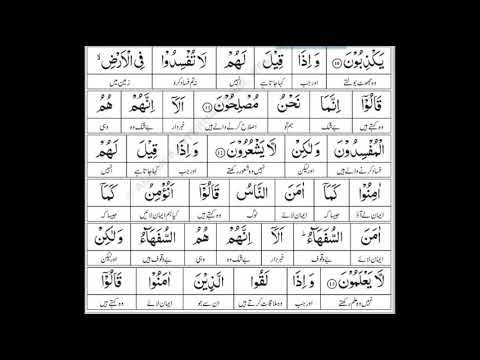 يَكْذِبُوْنَ ﴿۱۰﴾ وَ اِذَا قِيْلَ لَهُمْ لَا تُفْسِدُوْا فِى الْاَرْضِ ۙ
وہ جھوٹ بولتے اور جب کہا جاتا ہے انہیں نہ تم فساد کرو زمین میں
قَالُوْۤا اِنَّمَا نَحْنُ مُصْلِحُوْنَ ﴿۱۱﴾ اَلَاۤ اِنَّهُمْ هُمُ
وہ کہتے ہیں بے شک ہم تو اصلاح کرنے والے ہیں خبردار بے شک وہ وہی
الْمُفْسِدُوْنَ وَ لٰكِنْ لَّا يَشْعُرُوْنَ ﴿۱۲﴾ وَ اِذَا قِيْلَ لَهُمْ
فساد کرنے والے ہیں اور لیکن نہیں وہ شعور رکھتے اور جب کہا جاتا ہے انہیں
اٰمِنُوْا كَمَاۤ اٰمَنَ النَّاسُ قَالُوْۤا اَنُؤْمِنُ كَمَاۤ
ایمان لے آؤ جیسا کہ ایمان لائے لوگ وہ کہتے ہیں کیا ہم ایمان لائیں جیسا کہ
اٰمَنَ السُّفَهَآءُ ؕ اَلَاۤ اِنَّهُمْ هُمُ السُّفَهَآءُ وَ لٰكِنْ
ایمان لائے بے وقوف خبردار بے شک وہ وہی بے وقوف ہیں اور لیکن
لَّا يَعْلَمُوْنَ ﴿۱۳﴾ وَ اِذَا لَقُوا الَّذِيْنَ اٰمَنُوْا قَالُوْۤا
نہیں وہ علم رکھتے اور جب وہ ملاقات کرتے ہیں ان سے جو ایمان لائے وہ کہتے ہیں